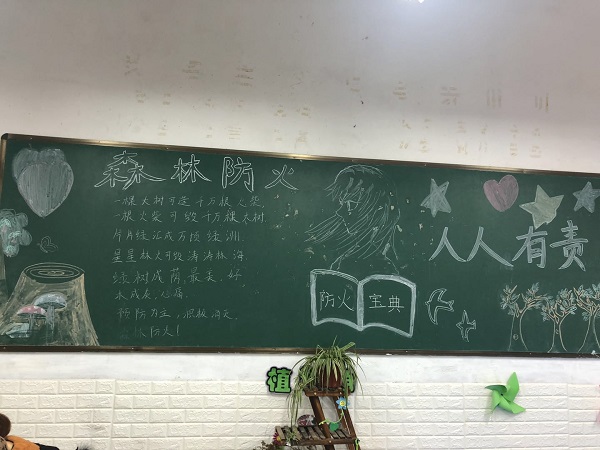 森林防火
一根大树可造千万根火柴,
一根火柴可毁千万棵大树
片片绿汇成万顷绿洲
星星林火可毁涛涛林海
绿树成荫,最美、好
木成灰,心痛
预防为主,积极消灭
防火!
防火 宝典
人人有责
植